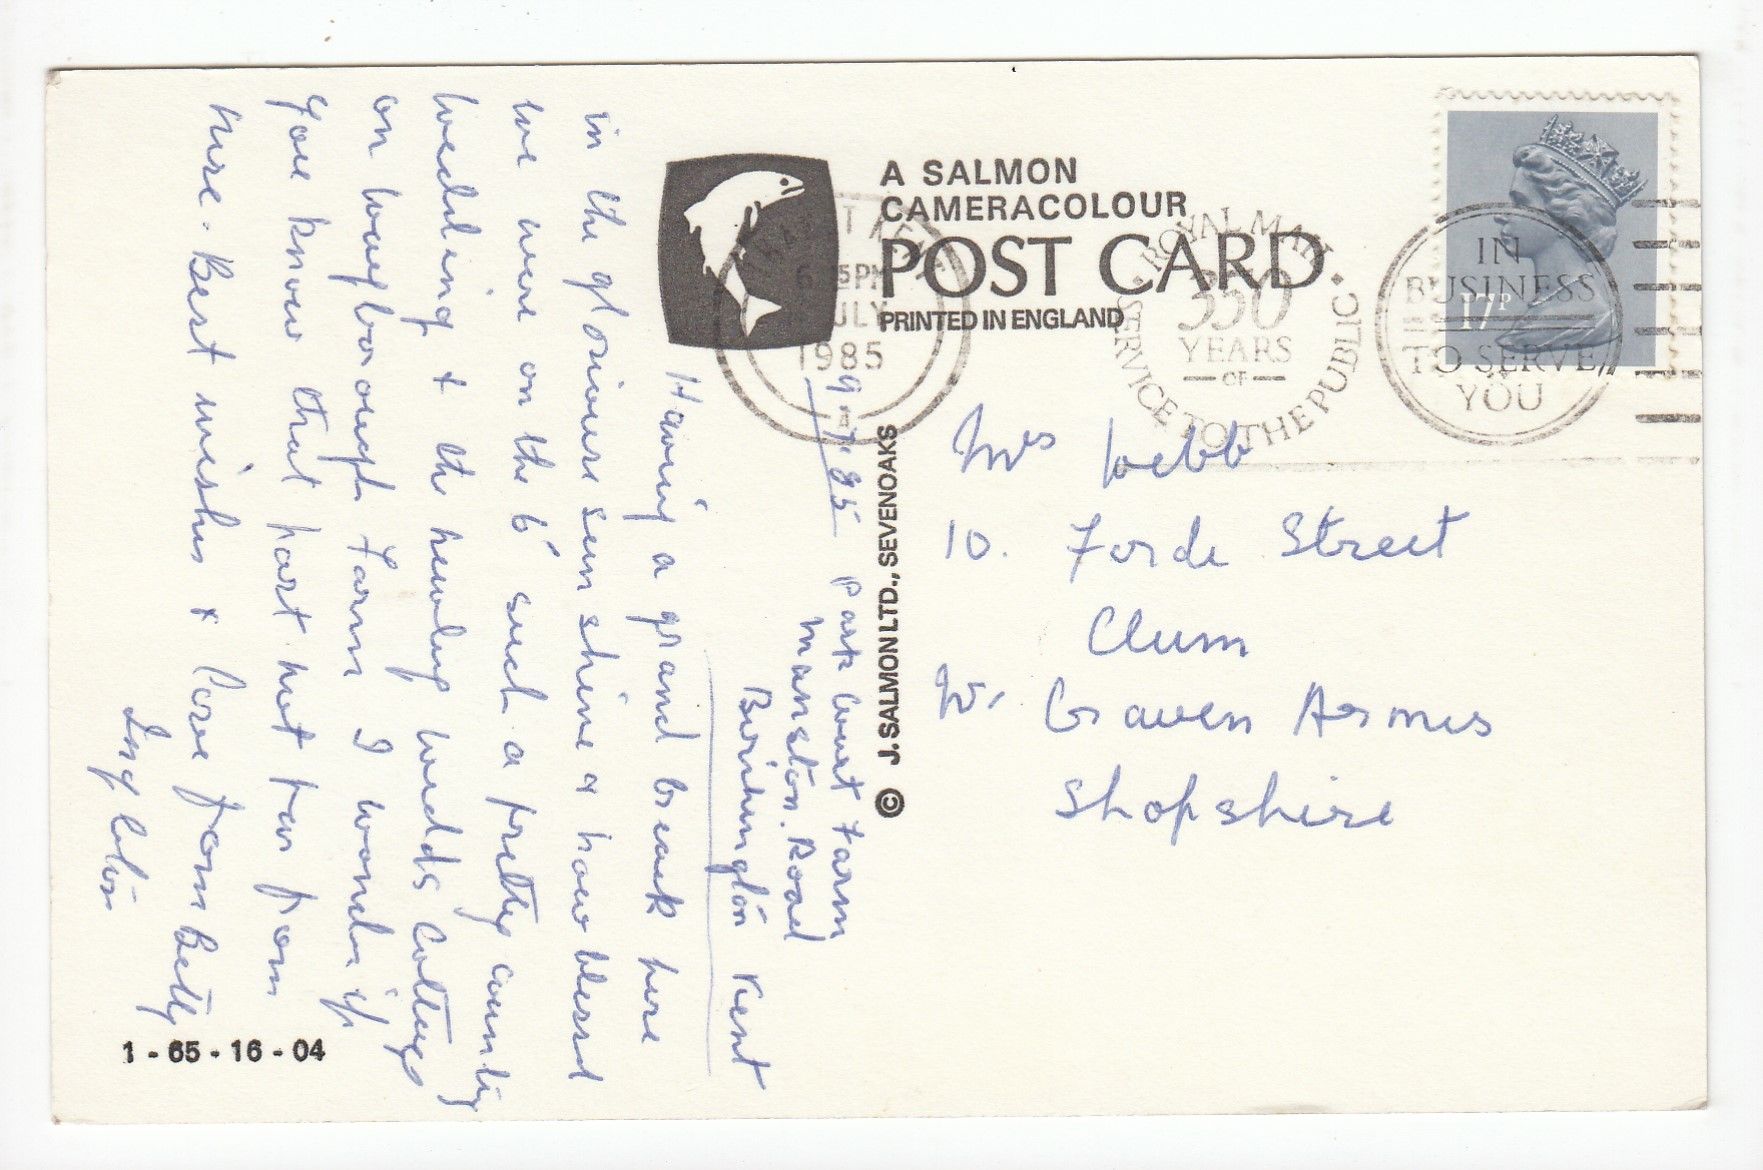 A SALMON
CAMERACOLOUR
POST CARD
PRINTED IN ENGLAND
5PM
JULY
1985
ROYAL MAIL
350
YEARS
OF
SERVICE TO THE PUBLIC
IN
BUSINESS
TO SERVE
YOU
17P
© J. SALMON LTD., SEVENOAKS
9.7.85 Park Court Farm
Manston. Road
Birchington Kent
Having a grand break here
in the glorious sunshine & how blessed
we were on the 6' such a pretty country
wedding & the newly weds cottage
on Farm I wonder if
you know that part not far from
here. Best wishes & love from Betty
Mrs Webb
10. Forde Street
Clum
Nr Craven Arms
Shopshire
1 - 65 - 16 - 04